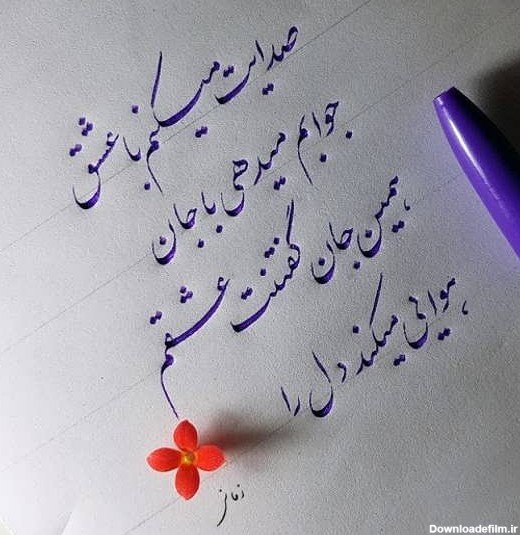 صدایت میکنم با عشق
جوابم میدهی با جان
همین جان گفتنت عشقم
هوایی میکند دل را
زمانی
Downloadefilm.ir